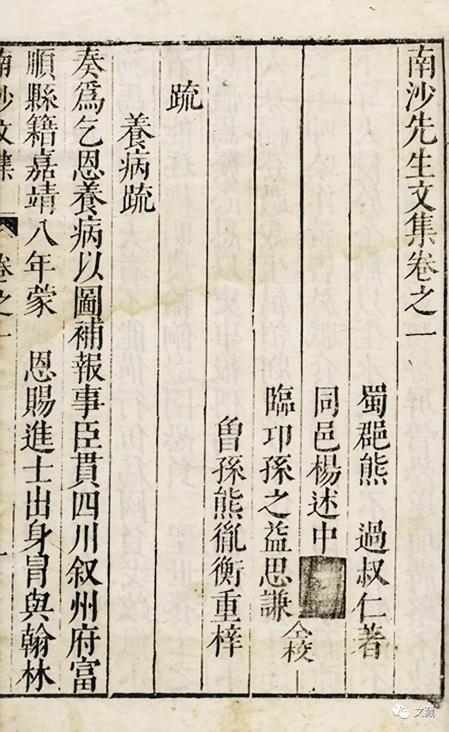 南沙先生文集卷之一
蜀郡熊 過叔仁著
同邑楊述中
臨邛孫之益思謙
仝校
曾孫熊胤衡重梓
疏
養病疏
奏爲乞恩養病以圖補報事臣貫四川叙州府富
順縣籍嘉靖八年蒙 恩賜進士出身冒與翰林
南沙文集 卷之一 一
文藏